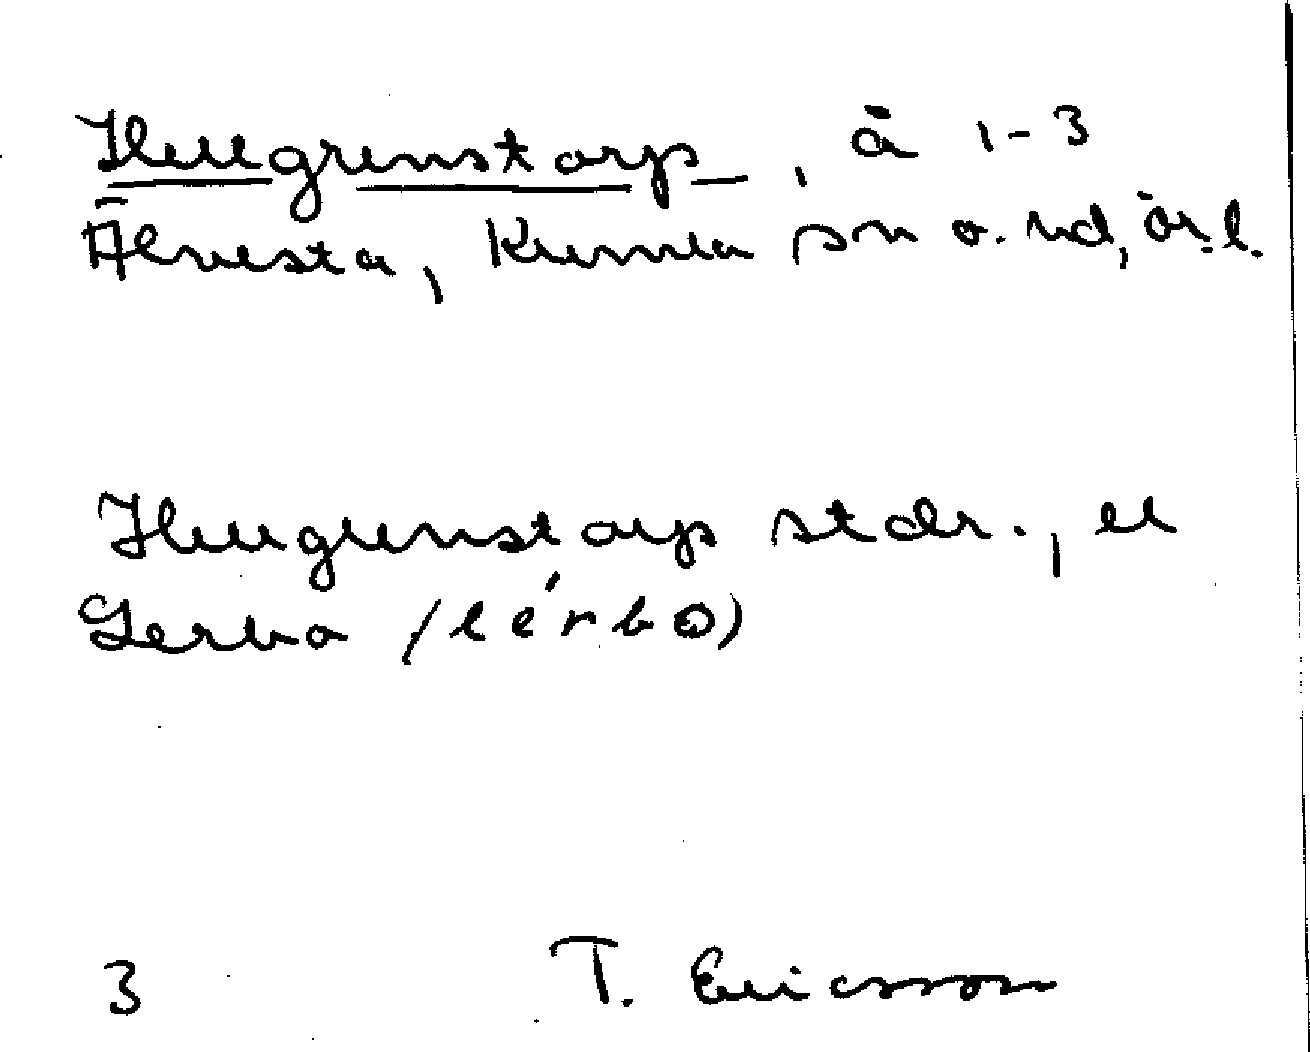 Hellgrenstorp, å 1-3
Älvesta, Kumla sn o. hd, Ör. l.
Hellgrenstorp stdr., el
Lerbo /lérbo)
3 T. Ericsson